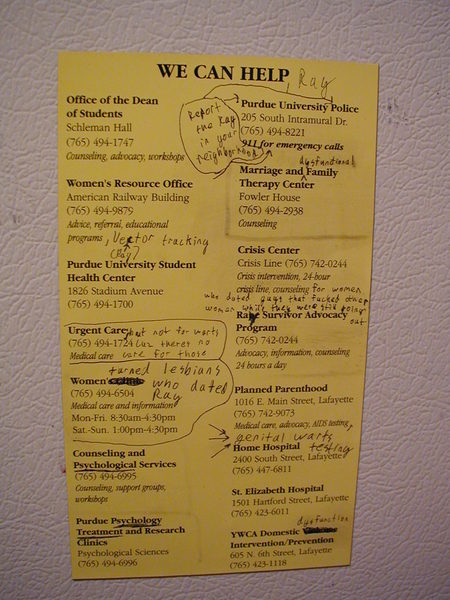 WE CAN HELP, Ray
Office of the Dean
of Students
Schleman Hall
(765) 494-1747
Counseling, advocacy, workshops
Women's Resource Office
American Railway Building
(765) 494-9879
Advice, referral, educational
programs, Vector tracking
(Ray)
Purdue University Student
Health Center
1826 Stadium Avenue
(765) 494-1700
Urgent Care, but not for warts
(765) 494-1724 cuz theres no
Medical care care for those
turned lesbians
Women's who dated
(765) 494-6504 Ray
Medical care and information
Mon-Fri. 8:30am-4:30pm
Sat.-Sun. 1:00pm-4:30pm
Counseling and
Psychological Services
(765) 494-6995
Counseling, support groups,
workshops
Purdue Psychology
Treatment and Research
Clinics
Psychological Sciences
(765) 494-6996
Report
the Ray
in your
neighborhood
Purdue University Police
205 South Intramural Dr.
(765) 494-8221
911 for emergency calls
dysfunctional
Marriage and Family
Therapy Center
Fowler House
(765) 494-2938
Counseling
Crisis Center
Crisis Line (765) 742-0244
Crisis intervention, 24-hour
crisis line, counseling for women
who dated guys that fucked other
women while they were still going
out
Survivor Advocacy
Program
(765) 742-0244
Advocacy, information, counseling
24 hours a day
Planned Parenthood
1016 E. Main Street, Lafayette
(765) 742-9073
Medical care, advocacy, AIDS testing,
genital warts
testing
Home Hospital
2400 South Street, Lafayette
(765) 447-6811
St. Elizabeth Hospital
1501 Hartford Street, Lafayette
(765) 423-6011
dysfunction
YWCA Domestic
Intervention/Prevention
605 N. 6th Street, Lafayette
(765) 423-1118